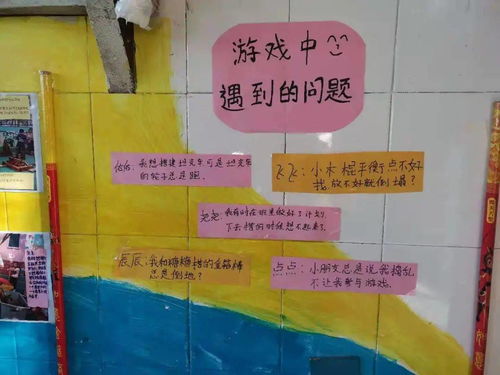 游戏中
遇到的问题
佑佑：我想搭建坦克车可是坦克车
的轮子总是跑。
飞飞：小木棍平衡点不好
我放不好就倒塌？
尧尧：我有时在班里做好了计划，
下去搭的时候想不起来？
辰辰：我和糖糖搭的金箍棒
总是倒地？
点点：小朋友总是说我捣乱
不让我参与游戏。